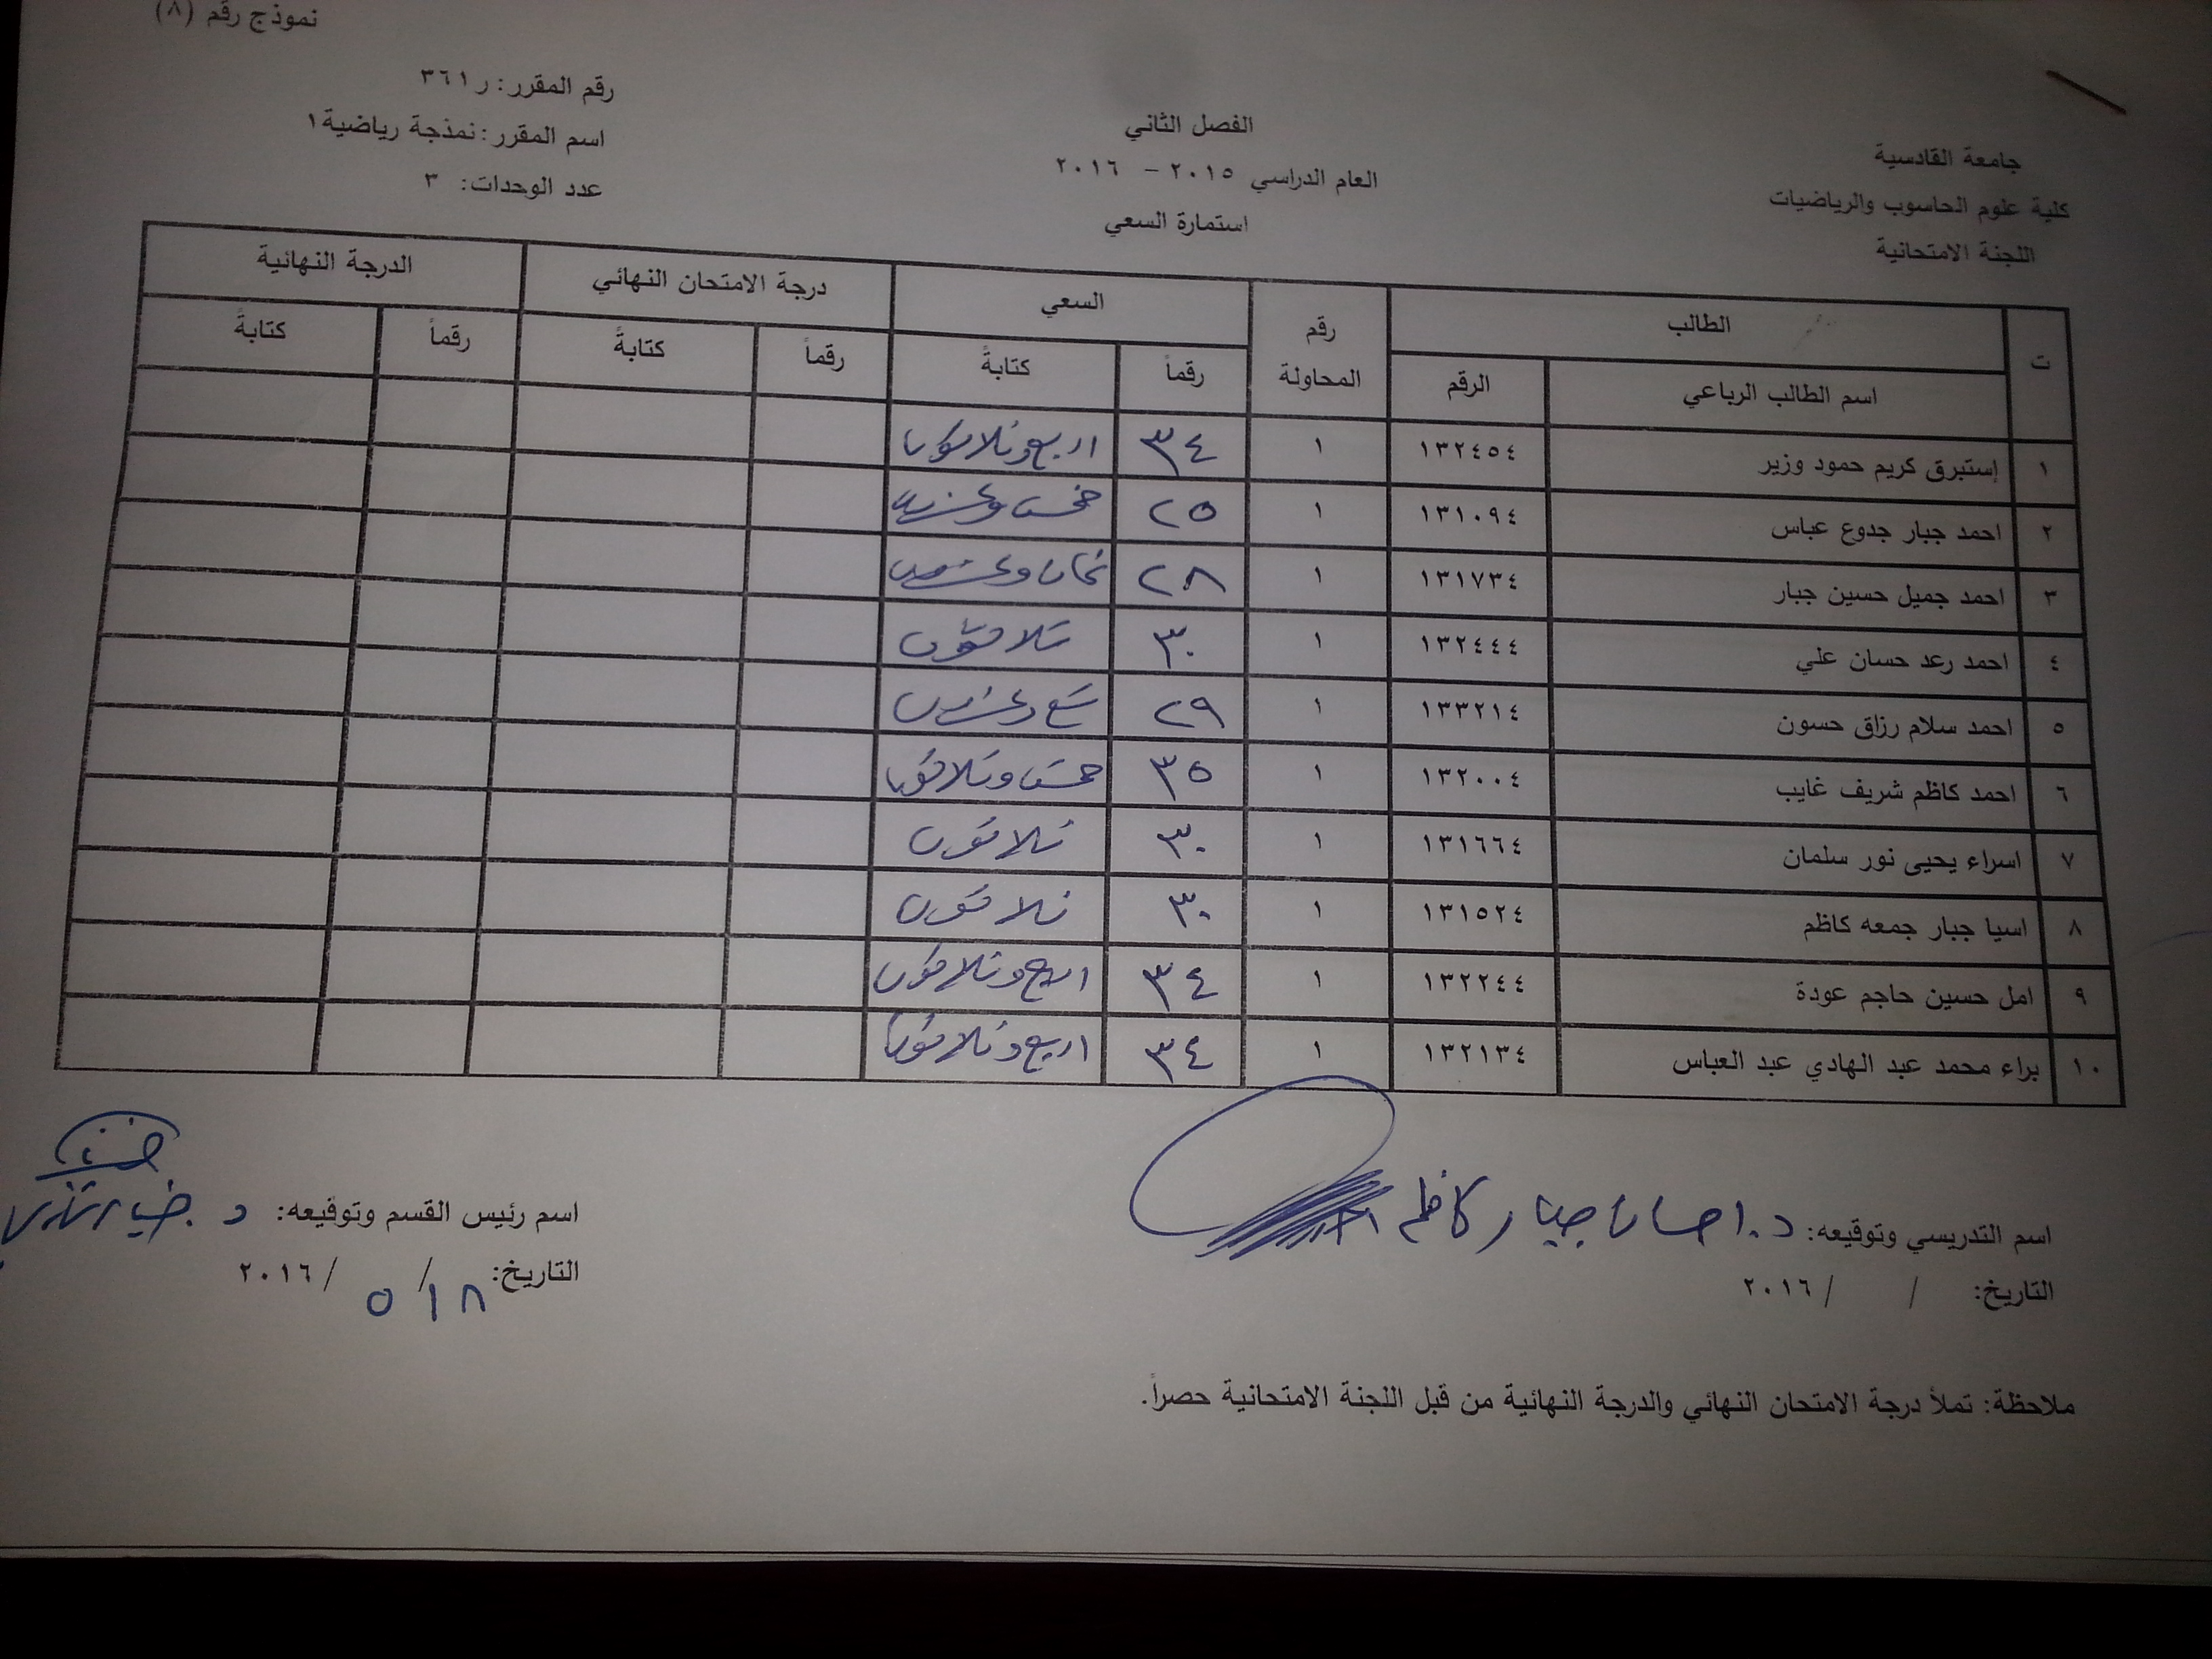 نموذج رقم (٨)
جامعة القادسية
كلية علوم الحاسوب والرياضيات
اللجنة الامتحانية
الفصل الثاني
العام الدراسي ٢٠١٥ – ٢٠١٦
استمارة السعي
رقم المقرر: ر٣٦١
اسم المقرر: نمذجة رياضية١
عدد الوحدات: ٣
ت الطالب رقم المحاولة السعي درجة الامتحان النهائي الدرجة النهائية
اسم الطالب الرباعي الرقم رقماً كتابةً رقماً كتابةً رقماً كتابةً
١ إستبرق كريم حمود وزير ١٣٢٤٥٤ ١ ٣٤ اربع وثلاثون
٢ احمد جبار جدوع عباس ١٣١٠٩٤ ١ ٢٥ خمس وعشرون
٣ احمد جميل حسين جبار ١٣١٧٣٤ ١ ٢٨ ثمان وعشرون
٤ احمد رعد حسان علي ١٣٢٤٤٤ ١ ٣٠ ثلاثون
٥ احمد سلام رزاق حسون ١٣٣٢١٤ ١ ٢٩ تسع وعشرون
٦ احمد كاظم شريف غايب ١٣٢٠٠٤ ١ ٣٥ خمس وثلاثون
٧ اسراء يحيى نور سلمان ١٣١٦٦٤ ١ ٣٠ ثلاثون
٨ اسيا جبار جمعه كاظم ١٣١٥٢٤ ١ ٣٠ ثلاثون
٩ امل حسين حاجم عودة ١٣٢٢٤٤ ١ ٣٤ اربع وثلاثون
١٠ براء محمد عبد الهادي عبد العباس ١٣٢١٣٤ ١ ٣٤ اربع وثلاثون
اسم التدريسي وتوقيعه: د. احسان جبار كاظم
التاريخ: / / ٢٠١٦
اسم رئيس القسم وتوقيعه: د.
التاريخ: ٨ / ٥ / ٢٠١٦
ملاحظة: تملأ درجة الامتحان النهائي والدرجة النهائية من قبل اللجنة الامتحانية حصراً.